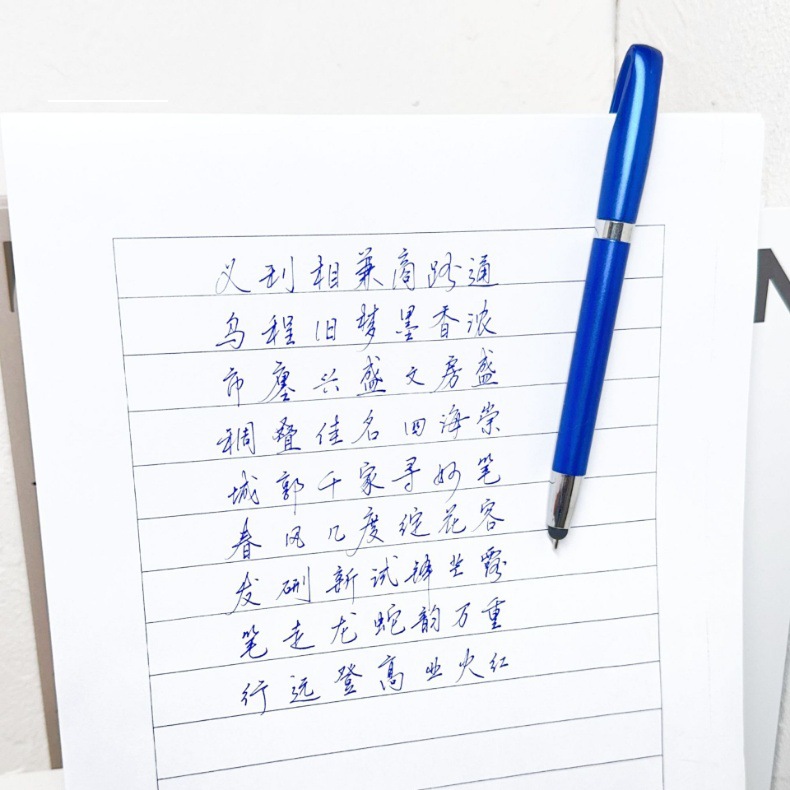 义利相兼商路通
乌程旧梦墨香浓
市廛兴盛文房盛
稠叠佳名四海崇
城郭千家寻妙笔
春风几度绽花容
发硎新试锋芒露
笔走龙蛇韵万重
行远登高业火红
N